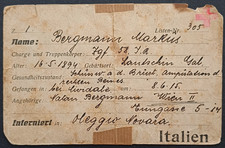 Z. 1 Listen-Nr. 305
Name: Bergmann Markus
Charge und Truppenkörper: Zgf. 58. I.R.
Alter 16.5.1894 Geburtsort
Gesundheitszustand Schüsse a. d. Brust, Amputation d.
rechten Beines
Gefangen bei Cividale 8.6.15.
Angehörige Vater Bergmann Wien II
5-24
Interniert in Oleggio Novara
Italien